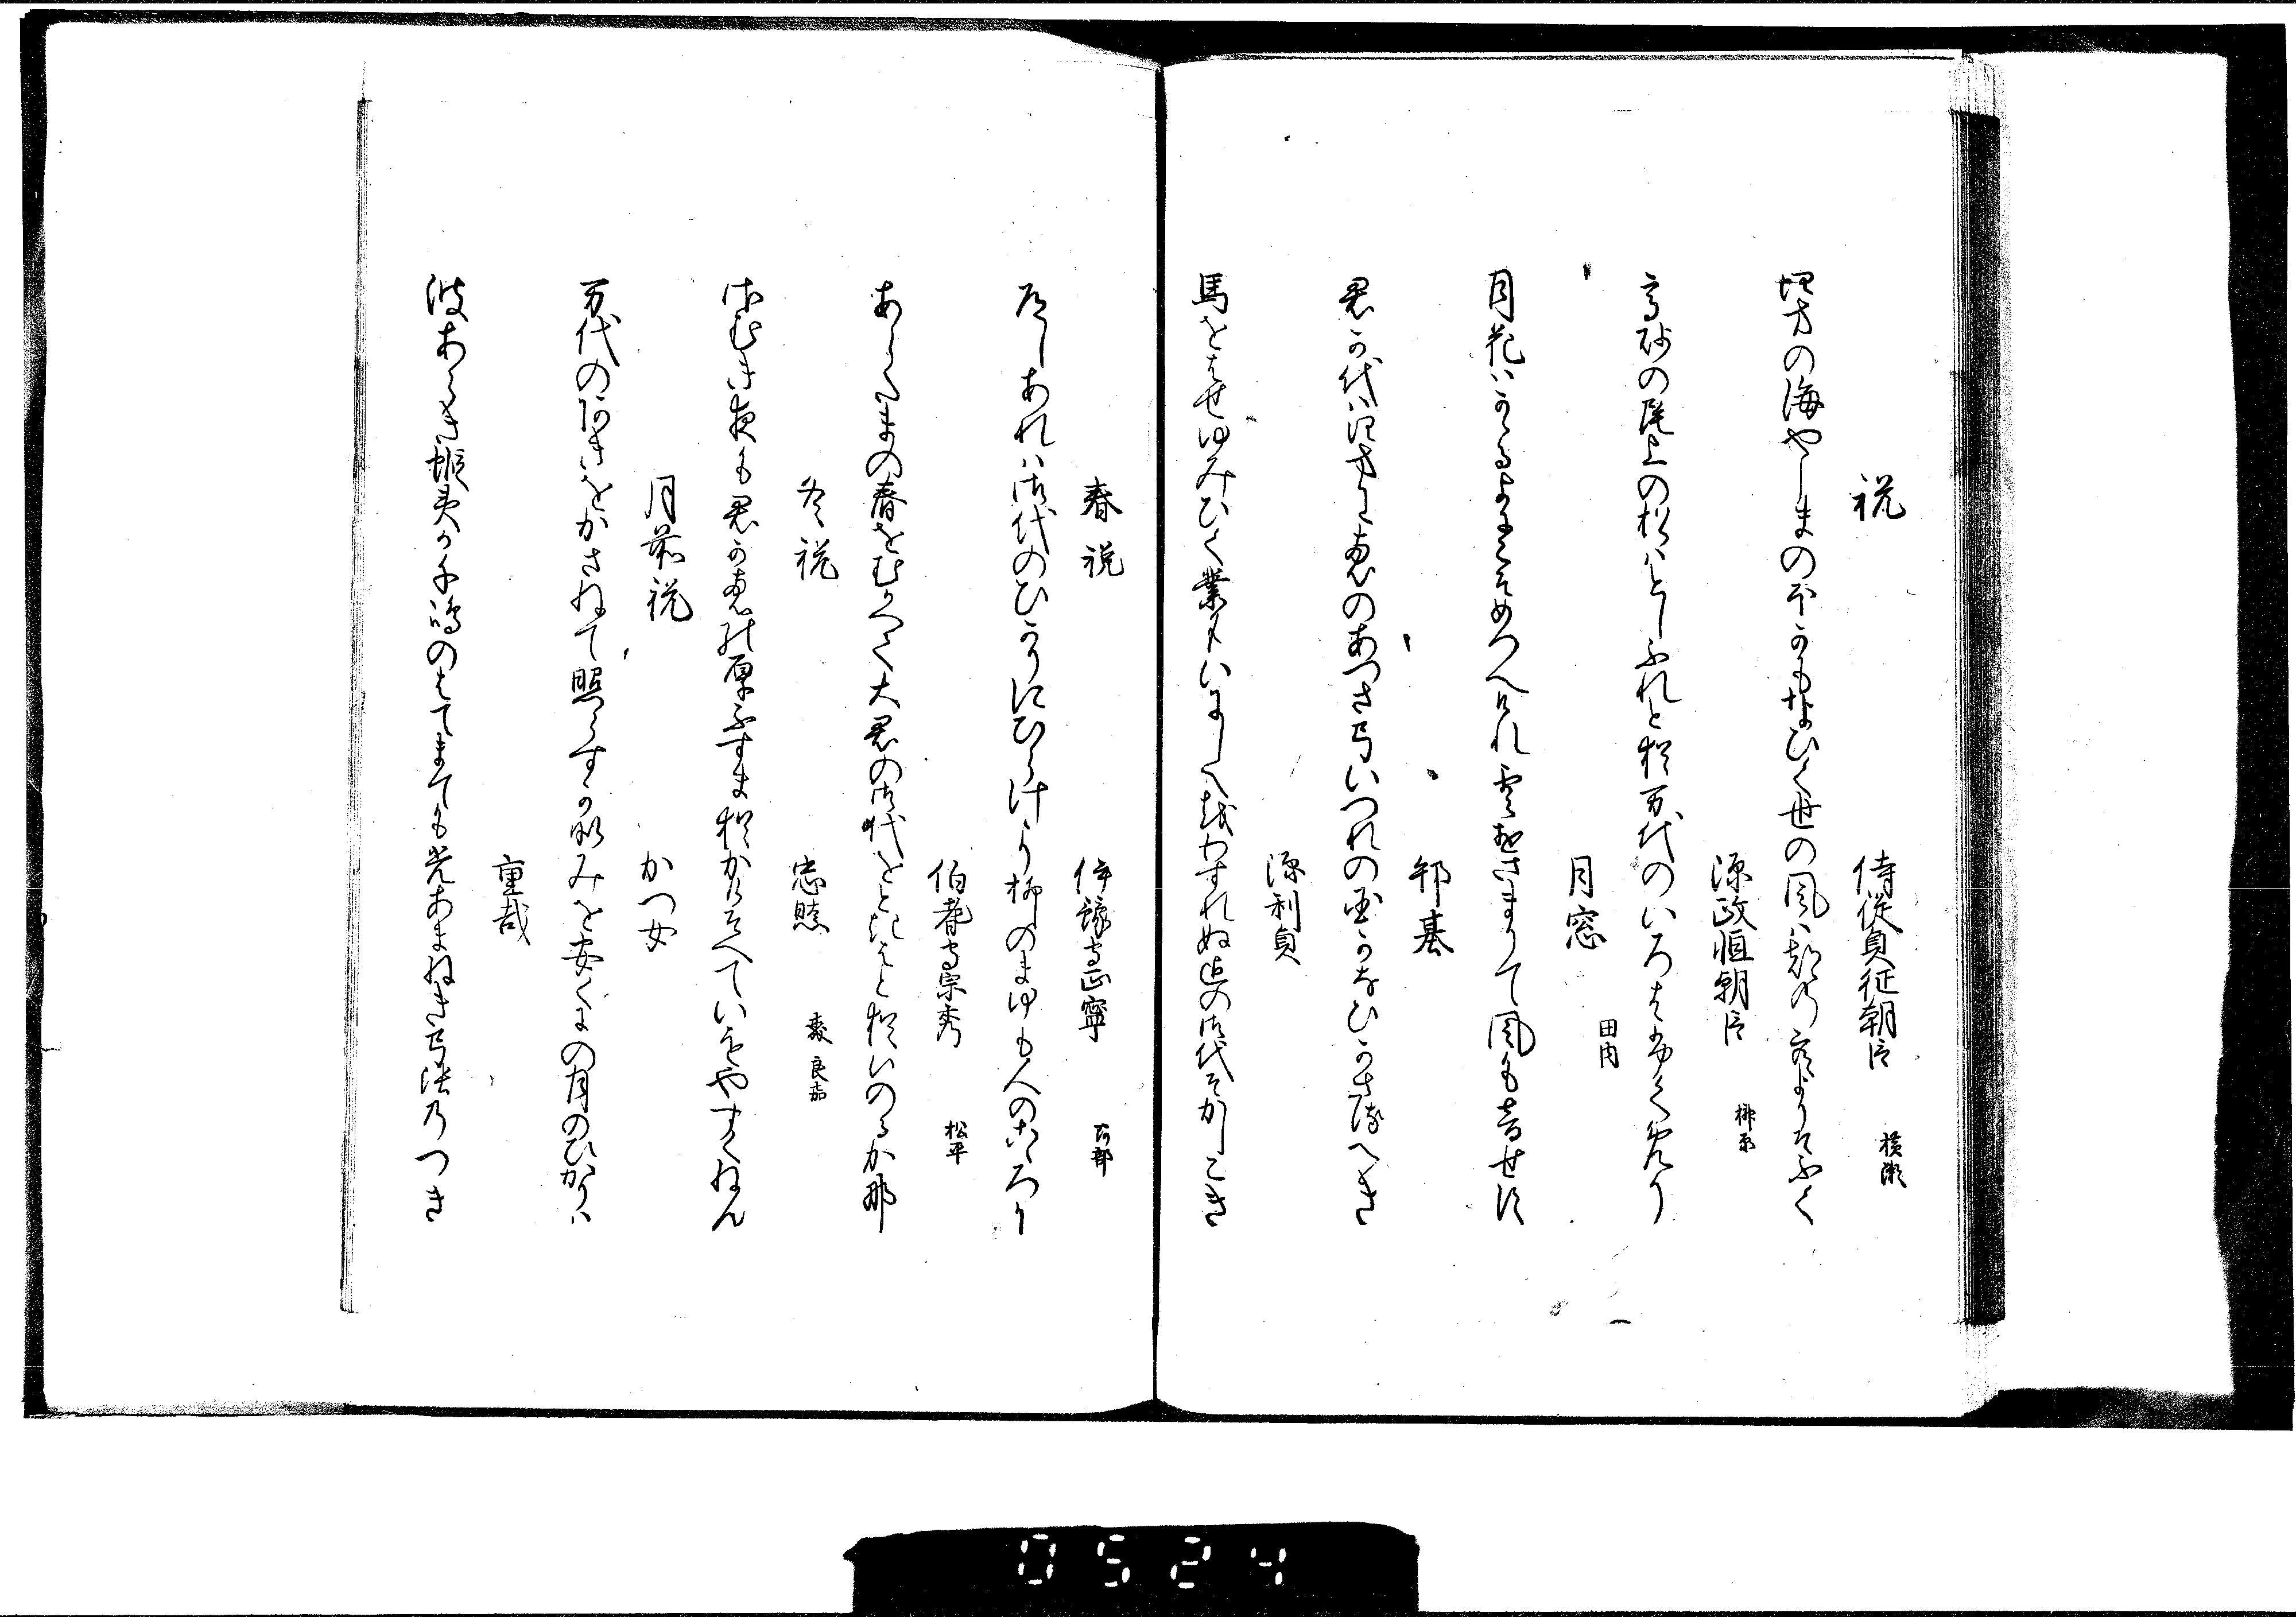 祝
侍従貞征朝臣 横瀬
四方の海やしまのほかもなひく世の風は都の空よりそふく
源政恒朝臣 榊原
高砂の尾上の松はとしふれと猶万代のいろはみゆ
月窓 田内
月花はかゝるよにこそめつへけれ雲をさまりて風も音せす
邦基
君か代は四方に恵のあつさ弓いつれの国かなひかさるへき
源利貞
馬をはせゆみひく業もいにしへをわすれぬ道の御代そかしこき
春祝
伊豫守正寧 阿部
君しあれは御代のひかりにひらけより柳のまゆも人のこゝろも
伯耆守宗秀 松平
あらたまの春をむかへて大君の御代をときはと猶いのるかな
冬祝
忠照 森 良斎
さむき夜も君か恵の厚ふすま猶かけそへていをやすくねん
月前祝
かつ女
万代のあきをかさねて照らすかみを安くにの月のひかりは
重哉
波あらき蝦夷か千嶋のはてまても光あまねき弓張乃つき
0524